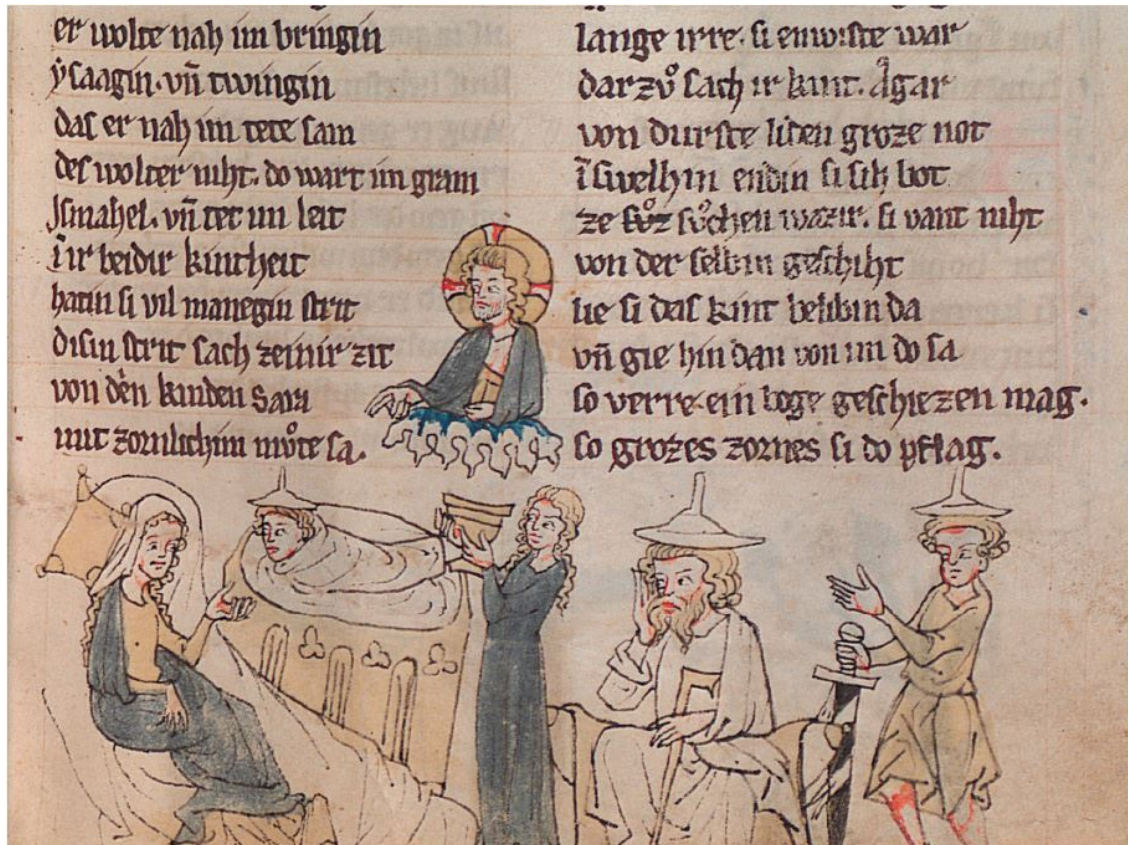 er wolte nah im bringin
ẏsaagin. vn̄ twingin
das er nah im tete sam
des wolter niht. do wart im gram
Jsmahel. vn̄ tet im leit
ī ir beidir kintheit
hatin si vil manegin strit
disin strit sach zeinir zit
von dēn kinden Sara
mit zornlichim mͦte sa.
lange irre. si enwiste war
dar zvͦ sach ir kint. Agar
von durste liden groze not
ī swelhin endin si sih bot
ze svͦchen wazir. si vant niht
von der selbin geschiht
lie si das kint belibin da
vn̄ gie hin dan von im do sa
so verre ein boge geschiezen mag.
so grozes zornes si do pflag.